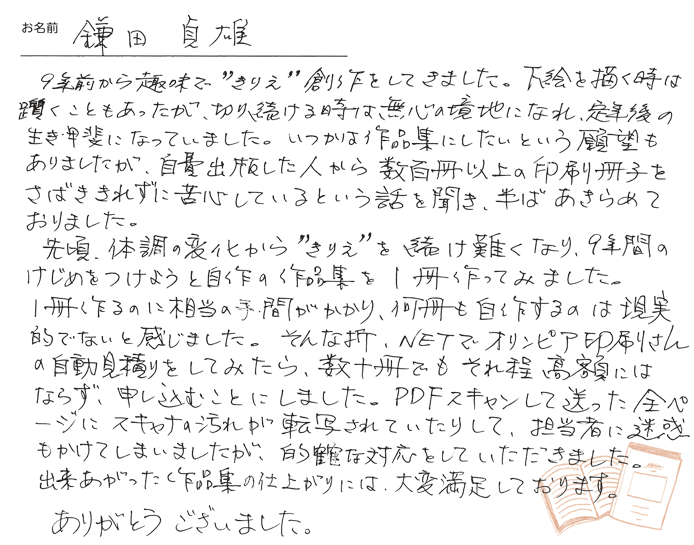 お名前 鎌田 貞雄
9年前から趣味で"きりえ"創作をしてきました。下絵を描く時は
躓くこともあったが、切り続ける時は無心の境地になれ、定年後の
生き甲斐になっていました。いつかは作品集にしたいという願望も
ありましたが、自費出版した人から数百冊以上の印刷冊子を
さばききれずに苦心しているという話を聞き、半ばあきらめて
おりました。
先頃、体調の変化から"きりえ"を続け難くなり、9年間の
けじめをつけようと自作の作品集を1冊作ってみました。
1冊作るのに相当の手間がかかり、何冊も自作するのは現実
的でないと感じました。そんな折、NETでオリンピア印刷さん
の自動見積りをしてみたら、数十冊でもそれ程高額には
ならず、申し込むことにしました。PDFスキャンして送った全ペ
ージにスキャナの汚れが転写されていたりして、担当者に迷惑
もかけてしまいましたが、的確な対応をしていただきました。
出来あがった作品集の仕上がりには、大変満足しております。
ありがとうございました。